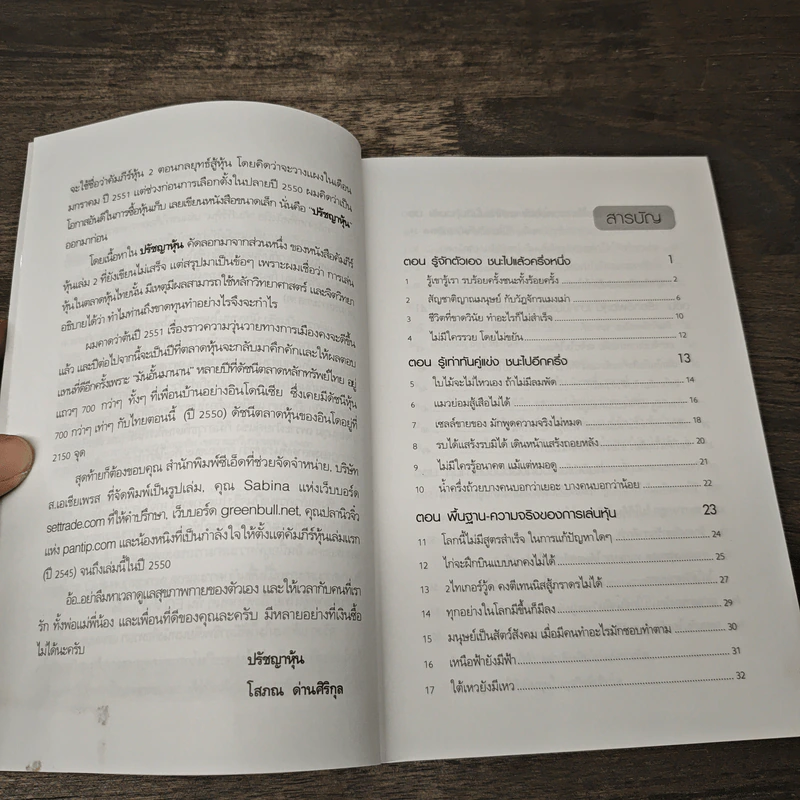 จะใช้ชื่อว่าคัมภีร์หุ้น 2 ตอนกลยุทธ์สู้หุ้น โดยคิดว่าจะวางแผงในเดือน
มกราคม ปี 2551 แต่ช่วงก่อนการเลือกตั้งในปลายปี 2550 ผมคิดว่าเป็น
โอกาสอันดีในการซื้อหุ้นเก็บ เลยเขียนหนังสือขนาดเล็ก นั่นคือ "ปรัชญาหุ้น"
ออกมาก่อน
โดยเนื้อหาใน ปรัชญาหุ้น คัดลอกมาจากส่วนหนึ่ง ของหนังสือคัมภีร์
หุ้นเล่ม 2 ที่ยังเขียนไม่เสร็จ แต่สรุปมาเป็นข้อๆ เพราะผมเชื่อว่า การเล่น
หุ้นในตลาดหุ้นไทยนั้น มีเหตุมีผลสามารถใช้หลักวิทยาศาสตร์ และจิตวิทยา
อธิบายได้ว่า ทำไมท่านถึงขาดทุนทำอย่างไรจึงจะกำไร
ผมคาดว่าต้นปี 2551 เรื่องราวความวุ่นวายทางการเมืองคงจะดีขึ้น
แล้ว และปีต่อไปจากนี้จะเป็นปีที่ตลาดหุ้นจะกลับมาคึกคักและให้ผลตอบ
แทนที่ดีอีกครั้งเพราะ "มันอั้นมานาน" หลายปีที่ดัชนีตลาดหลักทรัพย์ไทย อยู่
แถวๆ 700 กว่าๆ ทั้งๆ ที่เพื่อนบ้านอย่างอินโดนิเซีย ซึ่งเคยมีดัชนีหุ้น
700 กว่าๆ เท่าๆ กับไทยตอนนี้ (ปี 2550) ดัชนีตลาดหุ้นของอินโดอยู่ที่
2150 จุด
สุดท้ายก็ต้องขอบคุณ สำนักพิมพ์ซีเอ็ดที่ช่วยจัดจำหน่าย, บริษัท
ส.เอเซียเพรส ที่จัดพิมพ์เป็นรูปเล่ม, คุณ Sabina แห่งเว็บบอร์ด
settrade.com ที่ให้คำปรึกษา, เว็บบอร์ด greenbull.net, คุณปลานิวจิ๋ว
แห่ง pantip.com และน้องหนึ่งที่เป็นกำลังใจให้ตั้งแต่คัมภีร์หุ้นเล่มแรก
(ปี 2545) จนถึงเล่มนี้ในปี 2550
อ้อ..อย่าลืมหาเวลาดูแลสุขภาพกายของตัวเอง และให้เวลากับคนที่เรา
รัก ทั้งพ่อแม่พี่น้อง และเพื่อนที่ดีของคุณละครับ มีหลายอย่างที่เงินซื้อ
ไม่ได้นะครับ
ปรัชญาหุ้น
โสภณ ด่านศิริกุล
สารบัญ
ตอน รู้จักตัวเอง ชนะไปแล้วครึ่งหนึ่ง 1
1 รู้เขารู้เรา รบร้อยครั้งชนะทั้งร้อยครั้ง 2
2 สัญชาติญาณมนุษย์ กับวัฏจักรแมงเม่า 6
3 ชีวิตที่ขาดวินัย ทำอะไรก็ไม่สำเร็จ 10
4 ไม่มีใครรวย โดยไม่ขยัน 12
ตอน รู้เท่าทันคู่แข่ง ชนะไปอีกครึ่ง 13
5 ใบไม้จะไม่ไหวเอง ถ้าไม่มีลมพัด 14
6 แมวย่อมสู้เสือไม่ได้ 16
7 เซลล์ขายของ มักพูดความจริงไม่หมด 18
8 รบได้แสร้งรบมิได้ เดินหน้าแสร้งถอยหลัง 20
9 ไม่มีใครรู้อนาคต แม้แต่หมอดู 21
10 น้ำครึ่งถ้วยบางคนบอกว่าเยอะ บางคนบอกว่าน้อย 22
ตอน พื้นฐาน-ความจริงของการเล่นหุ้น 23
11 โลกนี้ไม่มีสูตรสำเร็จ ในการแก้ปัญหาใดๆ 24
12 ไก่จะฝึกบินแบบนกคงไม่ได้ 25
13 2ไทเกอร์วู้ด คงตีเทนนิสสู้ภราดรไม่ได้ 27
14 ทุกอย่างในโลกมีขึ้นก็มีลง 29
15 มนุษย์เป็นสัตว์สังคม เมื่อมีคนทำอะไรมักชอบทำตาม 30
16 เหนือฟ้ายังมีฟ้า 31
17 ใต้เหวยังมีเหว 32